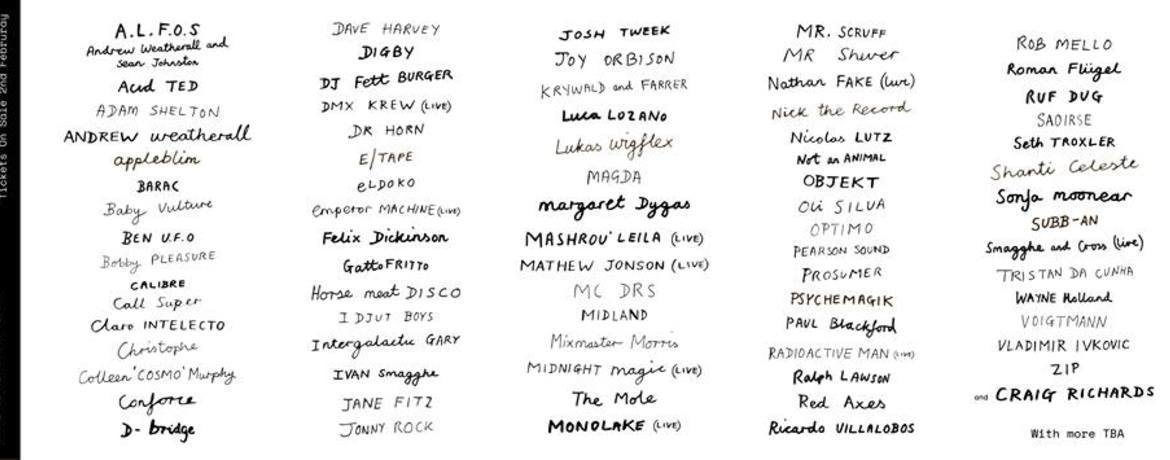 Tickets On Sale 2nd Februray
A.L.F.O.S
Andrew Weatherall and
Sean Johnston
Acid TED
ADAM SHELTON
ANDREW weatherall
appleblim
BARAC
Baby Vulture
BEN U.F.O
Bobby PLEASURE
CALIBRE
Call Super
Claro INTELECTO
Christophe
Colleen 'COSMO' Murphy
Conforce
D-bridge
DAVE HARVEY
DIGBY
DJ Fett BURGER
DMX KREW (LIVE)
DR HORN
E/TAPE
eLDOKO
emperor MACHINE (LIVE)
Felix Dickinson
Gatto FRITTO
Horse meat DISCO
I DJUT BOYS
Intergalactic GARY
IVAN Smagghe
JANE FITZ
JONNY ROCK
JOSH TWEEK
JOY ORBISON
KRYWALD and FARRER
Luca LOZANO
Lukas wigflex
MAGDA
margaret Dygas
MASHROU' LEILA (LIVE)
MATHEW JONSON (LIVE)
MC DRS
MIDLAND
Mixmaster Morris
MIDNIGHT magic (LIVE)
The Mole
MONOLAKE (LIVE)
MR. SCRUFF
MR Shiver
Nathan FAKE (live)
Nick the Record
Nicolas LUTZ
Not an ANIMAL
OBJEKT
Oli SILVA
OPTIMO
PEARSON SOUND
PROSUMER
PSYCHEMAGIK
PAUL Blackford
RADIOACTIVE MAN (LIVE)
Ralph LAWSON
Red Axes
Ricardo VILLALOBOS
ROB MELLO
Roman Flügel
RUF DUG
SAOIRSE
Seth TROXLER
Shanti Celeste
Sonja moonear
SUBB-AN
Smagghe and Cross (live)
TRISTAN DA CUNHA
WAYNE Holland
VOIGTMANN
VLADIMIR IVKOVIC
ZIP
and CRAIG RICHARDS
With more TBA